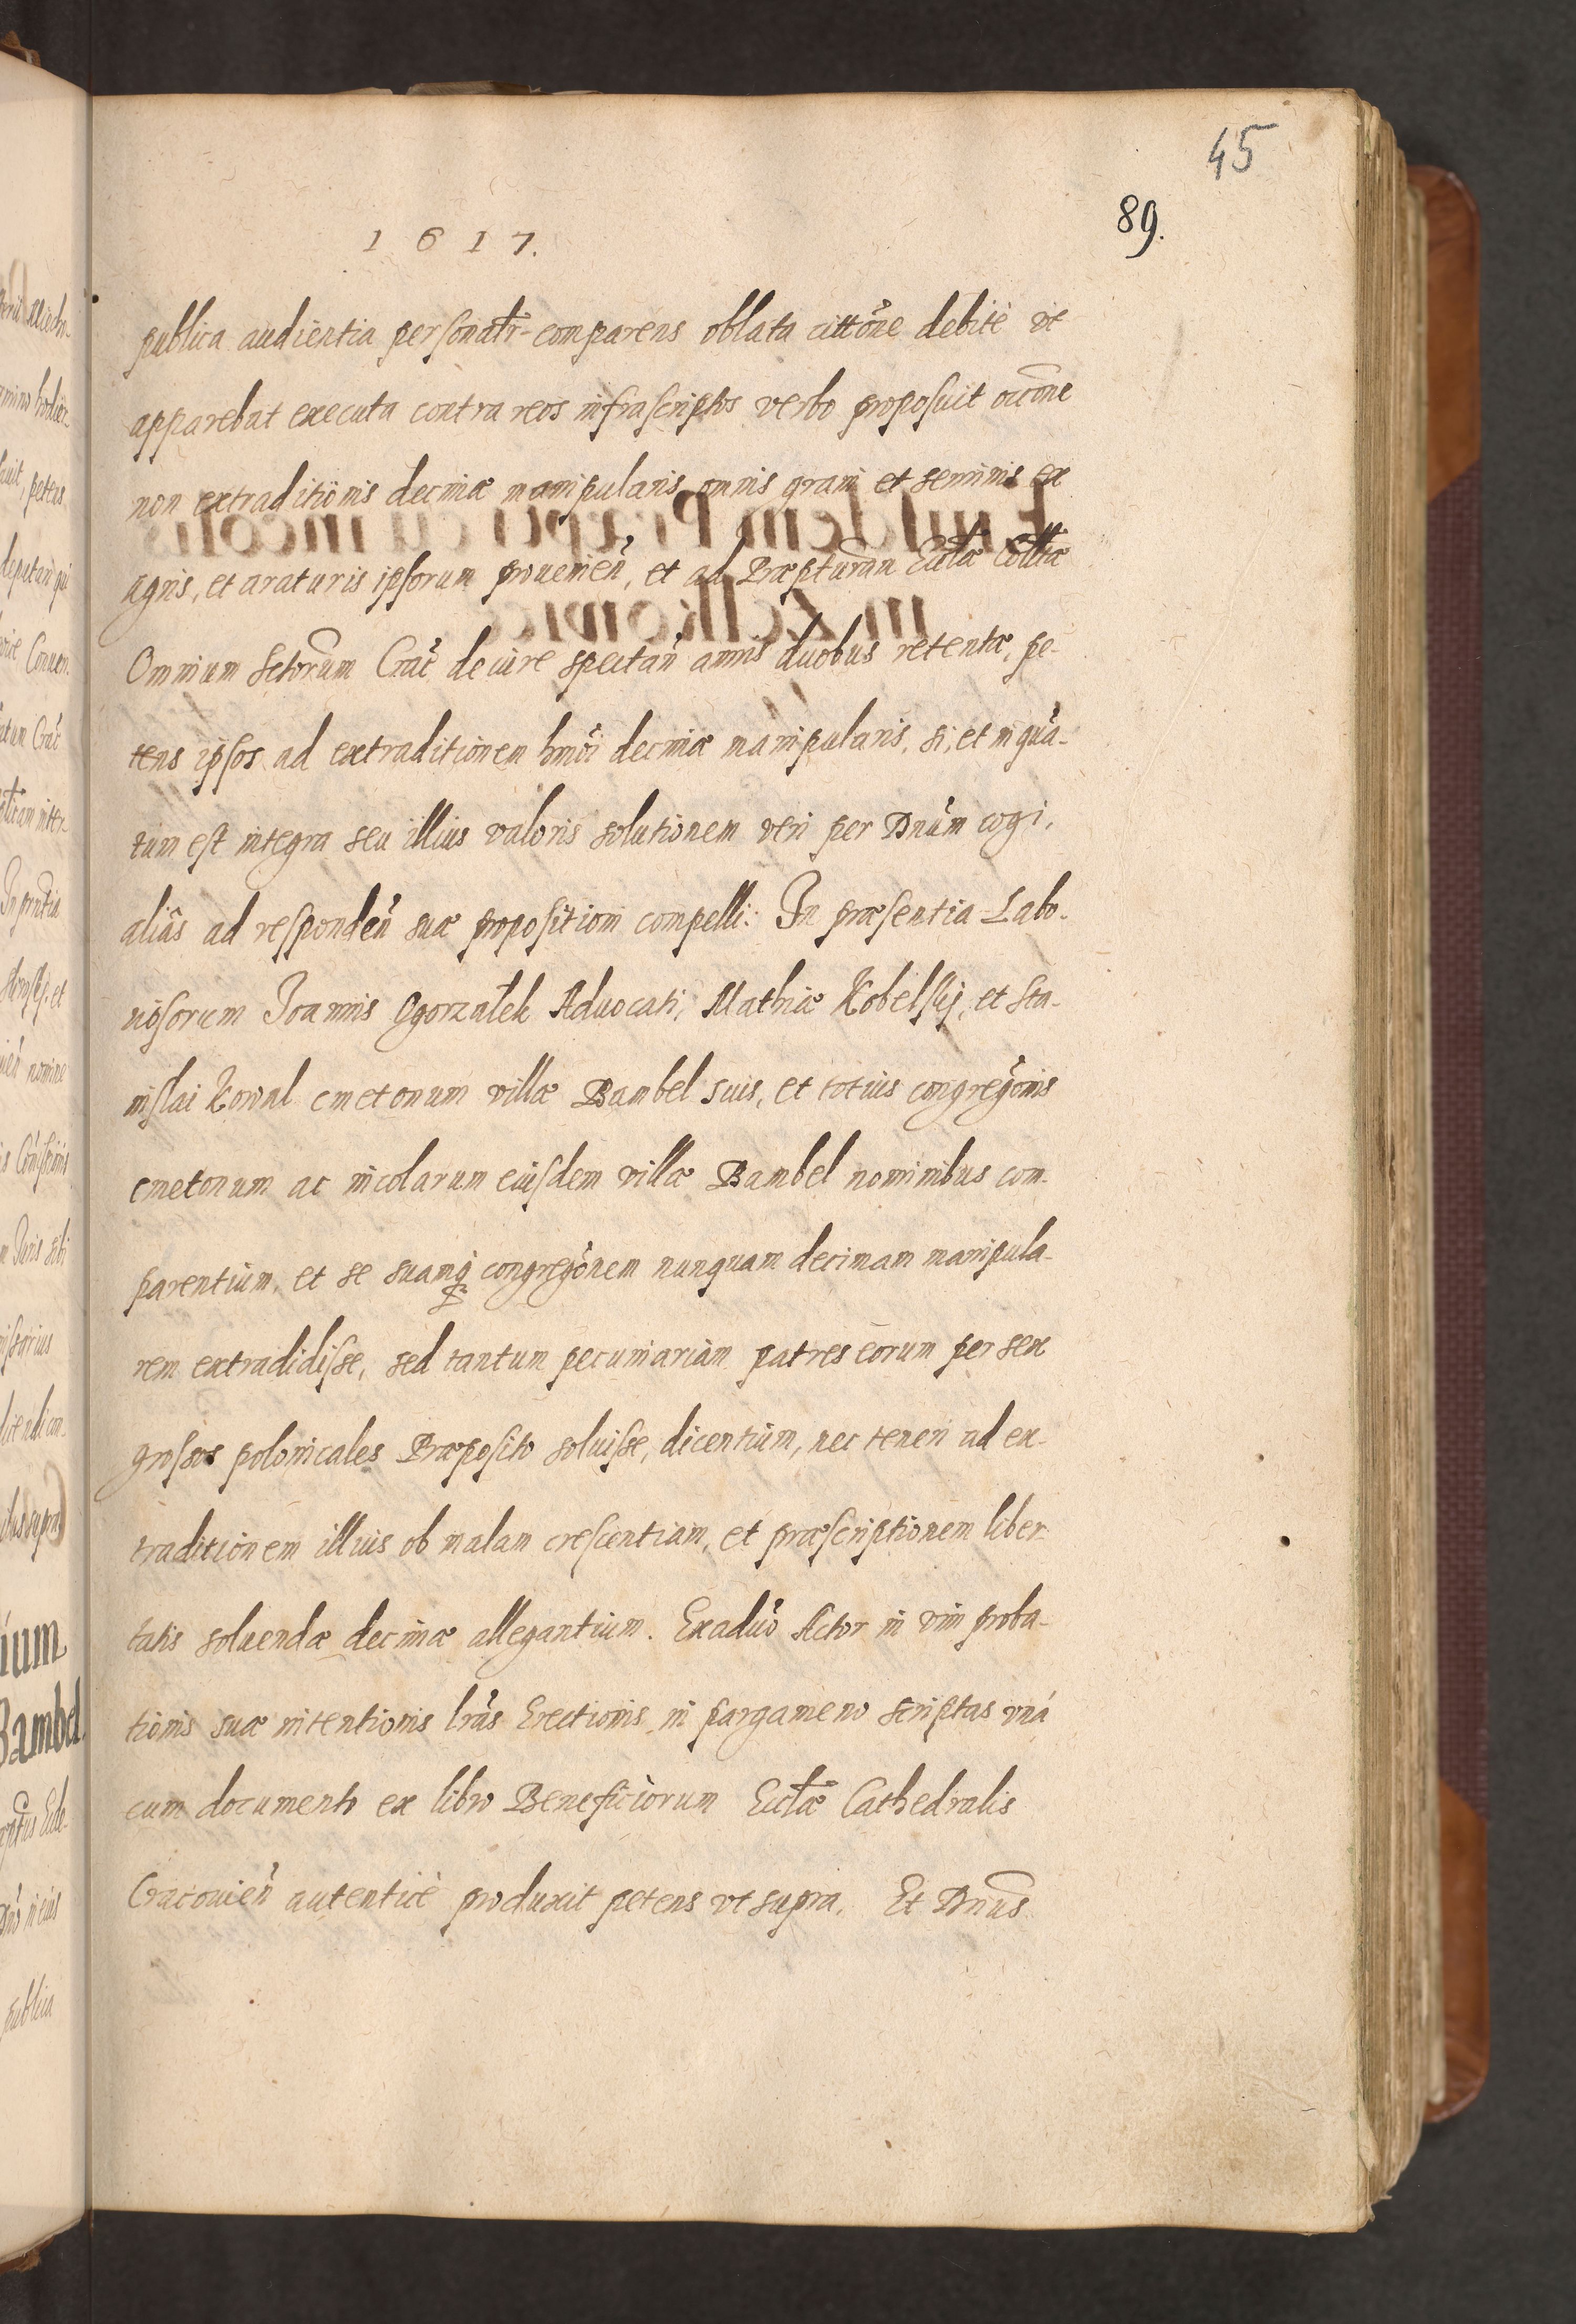 45
89.
1617.
publica audientia personatr̃ comparens oblata cittõne debitè vt
apparebat executa contra reos infrascriptos verbo proposuit occõne
non extraditionis decimæ manipularis omnis grani et seminis ex
agris, et araturis ipsorum prouenieñ, et ad Præpturam Ecclæ Collæ
Omnium Sctorum Crac̃ de iure spectañ annis duobus retentæ, pe-
tens ipsos ad extraditionem hmõi decimæ manipularis, si, et in quã-
tum est integra seu illius valoris solutionem veri per Dnũm cogi,
aliâs ad respondeñ suæ propositioni compelli. In præsentia Labo-
riosorum Joannis Ogorzalek Aduocati, Mathiæ Kobelskj, et Sta-
nislai Kowal cmetonum villæ Bambel suis, et totius congregõnis
cmetonum ac incolarum eiusdem villæ Bambel nominibus com-
parentium, et se suamq̃ congregõnem nunquam decimam manipula-
rem extradidisse, sed tantum pecuniariam patres eorum per sex
grossos polonicales Præposito soluisse, dicentium, nec teneri ad ex-
traditionem illius ob malam crescentiam, et præscriptionem liber-
tatis soluendæ decimæ allegantium. Exaduõ Actor in vim proba-
tionis suæ intentionis lrãs Erectionis in pargameno scriptas vná
cum documento ex libro Beneficiorum Ecclæ Cathedralis
Cracouieñ autenticè produxit petens vt supra. Et Dnũs